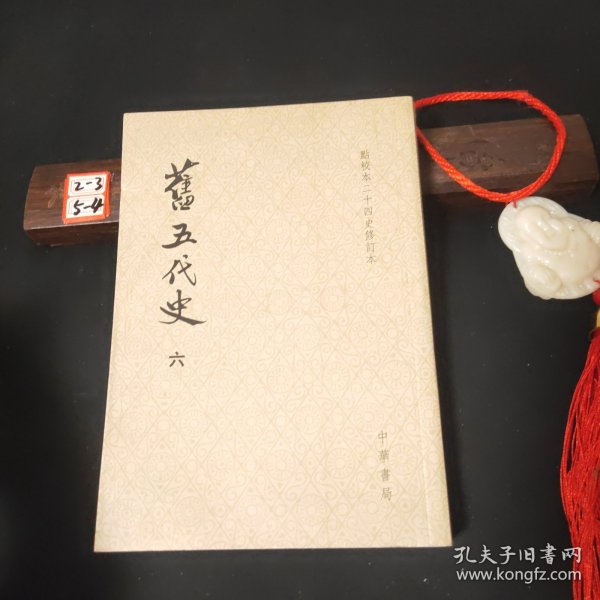 舊五代史
六
點校本二十四史修訂本
中華書局
12-3
5-4
孔夫子旧书网
www.kongfz.com